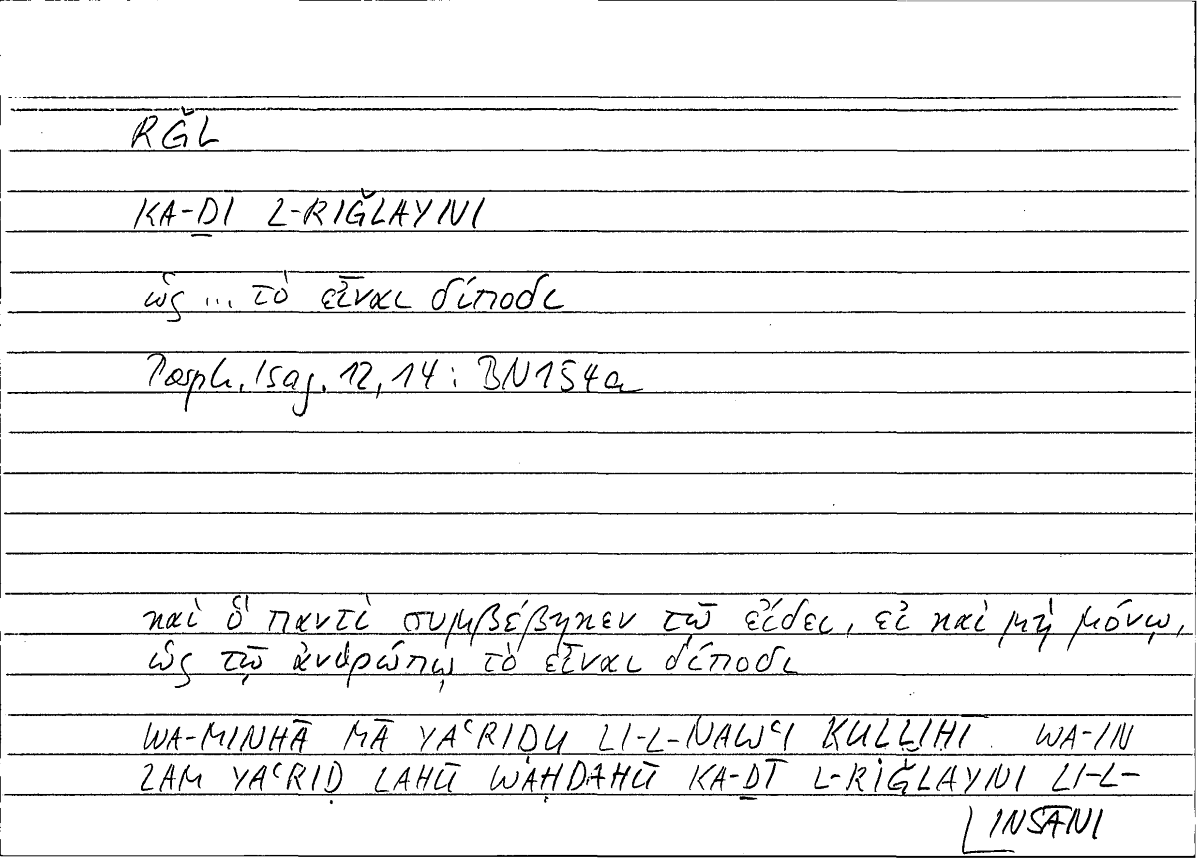 RǦL
KA-ḎI L-RIǦLAYNI
ὡς ... τὸ εἶναι δίποδι
Porph. Isag. 12, 14 : BN154a
καὶ ὃ παντὶ συμβέβηκεν τῷ εἴδει, εἰ καὶ μὴ μόνῳ,
ὡς τῷ ἀνθρώπῳ τὸ εἶναι δίποδι
WA-MINHĀ MĀ YAʿRIḌU LI-L-NAWʿI KULLIHI WA-IN
LAM YAʿRIḌ LAHŪ WAḤDAHŪ KA-ḎĪ L-RIǦLAYNI LI-L-
INSĀNI